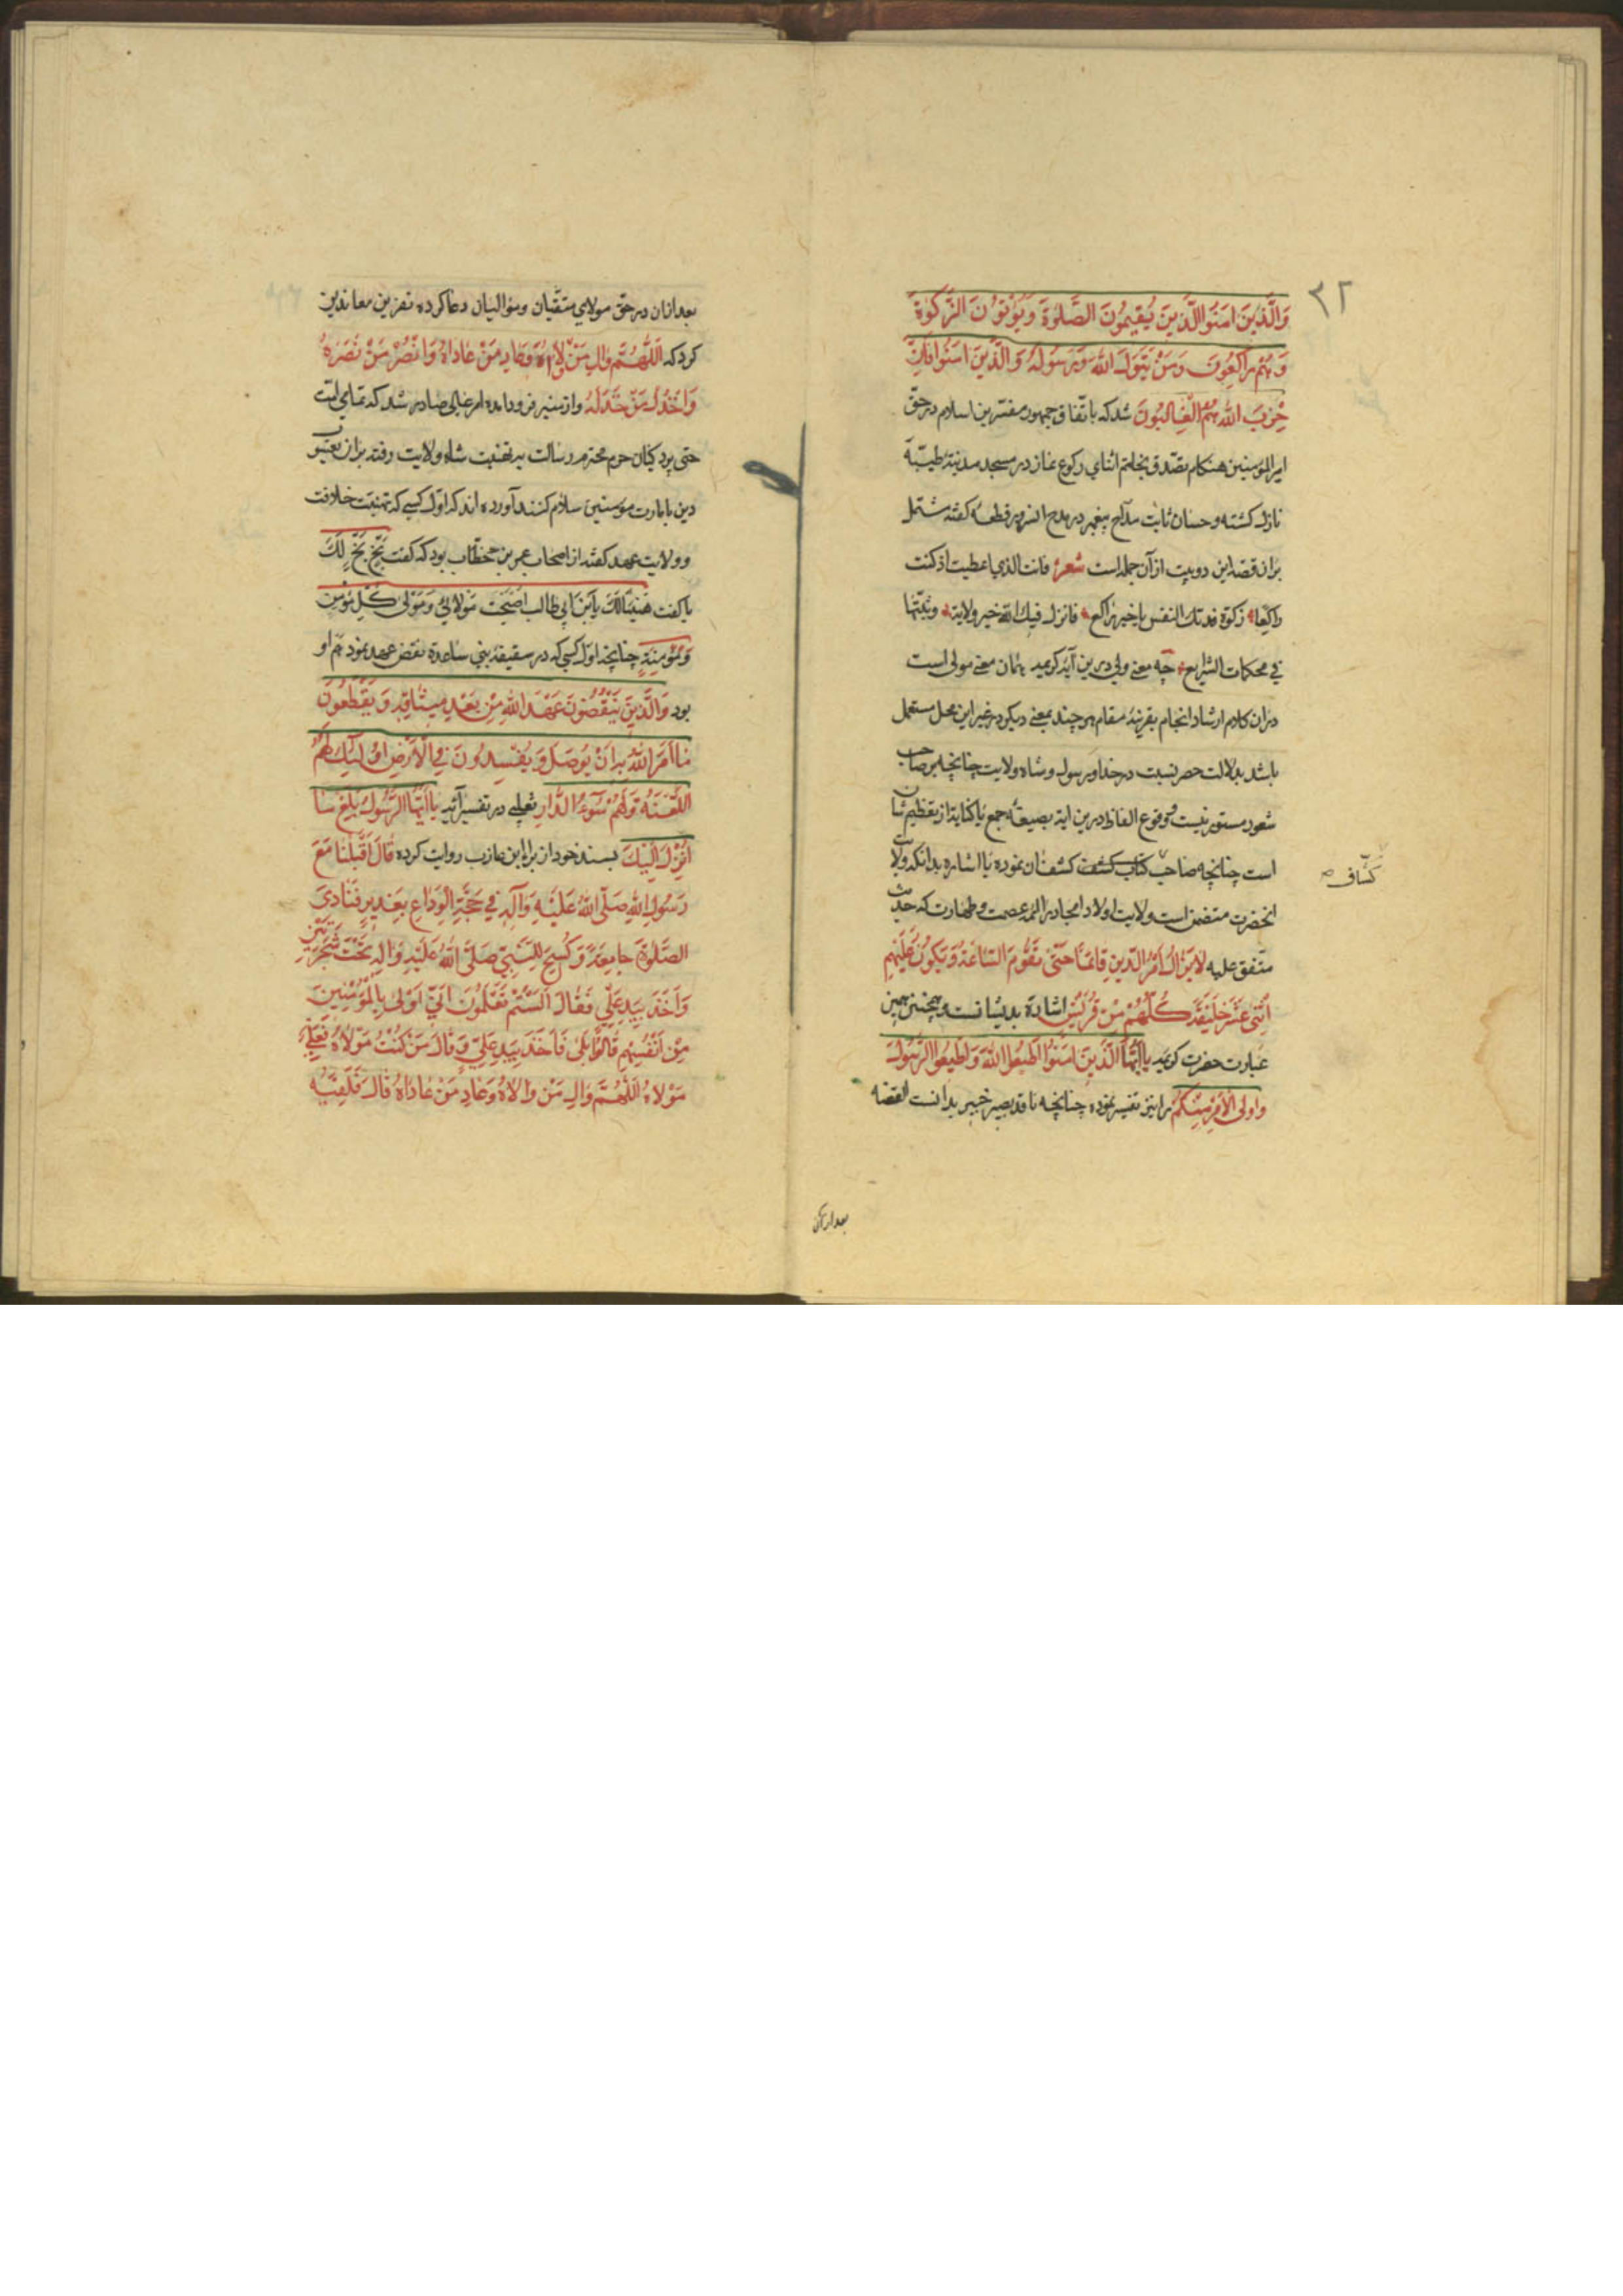 ٣٢
وَالَّذِينَ اٰمَنُوا الَّذِينَ يُقِيمُونَ الصَّلٰوةَ وَيُؤْتُونَ الزَّكٰوةَ
وَهُمْ رَاكِعُونَ وَمَنْ يَتَوَلَّ اللّٰهَ وَرَسُولَهُ وَالَّذِينَ اٰمَنُوا فَاِنَّ
حِزْبَ اللّٰهِ هُمُ الْغَالِبُونَ شد که باتّفاق جمهور مفسّرین اسلام در حقّ
امیرالمؤمنین هنکام تصدّق بخاتم اثنای رکوع نماز در مسجد مدینهٔ طیّبه
نازل کشته و حسان ثابت مدّاح پیغمبر در مدح انسرور قطعهٔ کفته مشتمل
بران قصّه این دو بیت از آن جمله است شعر فانت الذی اعطیت اذ کنت
راکعا زکوة فدتک النفس یا خیر راکع فانزل فیک الله خیر ولایة وثبّتها
فی محکمات الشرایع چه معنی ولی درین آیهٔ کریمه همان معنی مولی است
دران کلام ارشاد انجام بقرینهٔ مقام هرچند بمعنی دیکر در غیر این محل مستعمل
باشد بدلالت حصر نسبت در خدا و رسول و شاه ولایت چنانچه بر صاحب
شعور مستور نیست و وقوع الفاظ درین ایه بصیغهٔ جمع یا کنایة از تعظیم شان
است چنانچه صاحب کتاب کشف کشف ان نموده یا اشاره بدانکه ولایت
کشاف
انحضرت متضمن است ولایت اولاد امجاد ائمه عصمت و طهارت که حدیث
متّفق علیه لَا يَزَالُ اَمْرُ الدِّينِ قَائِمًا حَتّٰى تَقُومَ السَّاعَةُ وَيَكُونُ عَلَيْهِمْ
اِثْنٰى عَشَرَ خَلِيفَةً كُلُّهُمْ مِنْ قُرَيْشٍ اشاره بدیشانست و همچنین همین
عبارت حضرت کریمه يَا اَيُّهَا الَّذِينَ اٰمَنُوا اَطِيعُوا اللّٰهَ وَاَطِيعُوا الرَّسُولَ
وَاُولِى الْاَمْرِ مِنْكُمْ را نیز تفسیر نموده چنانچه ناقد بصیر خبیر بدانست القصه
بعد ازان
بعد ازان در حقّ مولای متقیان و موالیان دعا کرده نفرین معاندین
کرد که اَللّٰهُمَّ وَالِ مَنْ وَالَاهُ وَعَادِ مَنْ عَادَاهُ وَانْصُرْ مَنْ نَصَرَهُ
وَاخْذُلْ مَنْ خَذَلَهُ و از منبر فرود امده امر عالی صادر شد که تمامی امّت
حتی پردکیان حرم محترم رسالت بر تهنیت شاه ولایت رفته بران یعسوب
دین بامارت مؤمنین سلام کنند آورده اند که اوّل کسی که تهنیت خلافت
و ولایت عهد کفته از اصحاب عمر بن خطّاب بود که کفت بَخٍّ بَخٍّ لَكَ
یا کفت هَنِيئًا لَكَ يَا ابْنَ اَبِي طَالِب اَصْبَحْتَ مَوْلَايَ وَمَوْلٰى كُلِّ مُؤْمِنٍ
وَمُؤْمِنَةٍ چنانچه اوّل کسی که در سقیفهٔ بنی ساعده نقض عهد نمود هم او
بود وَالَّذِينَ يَنْقُضُونَ عَهْدَ اللّٰهِ مِنْ بَعْدِ مِيثَاقِهِ وَيَقْطَعُونَ
مَا اَمَرَ اللّٰهُ بِهِ اَنْ يُوصَلَ وَيُفْسِدُونَ فِي الْاَرْضِ اُولٰئِكَ لَهُمُ
اللَّعْنَةُ وَلَهُمْ سُوٓءُ الدَّارِ ثعلبی در تفسیر آیه يَا اَيُّهَا الرَّسُولُ بَلِّغْ مَا
اُنْزِلَ اِلَيْكَ بسند خود از براء ابن عازب روایت کرده قَالَ اَقْبَلْنَا مَعَ
رَسُولِ اللّٰهِ صَلَّى اللّٰهُ عَلَيْهِ وَآلِهِ فِي حَجَّةِ الْوِدَاعِ بِغَدِيرٍ فَنَادٰى
الصَّلٰوةَ جَامِعَةً وَكُسِحَ لِلنَّبِيِّ صَلَّى اللّٰهُ عَلَيْهِ وَآلِهِ تَحْتَ شَجَرَتَيْنِ
وَاَخَذَ بِيَدِ عَلِيٍّ فَقَالَ اَلَسْتُمْ تَعْلَمُونَ اَنِّي اَوْلٰى بِالْمُؤْمِنِينَ
مِنْ اَنْفُسِهِمْ قَالُوا بَلٰى فَاَخَذَ بِيَدِ عَلِيٍّ وَقَالَ مَنْ كُنْتُ مَوْلَاهُ فَعَلِيٌّ
مَوْلَاهُ اَللّٰهُمَّ وَالِ مَنْ وَالَاهُ وَعَادِ مَنْ عَادَاهُ قَالَ فَلَقِيَهُ